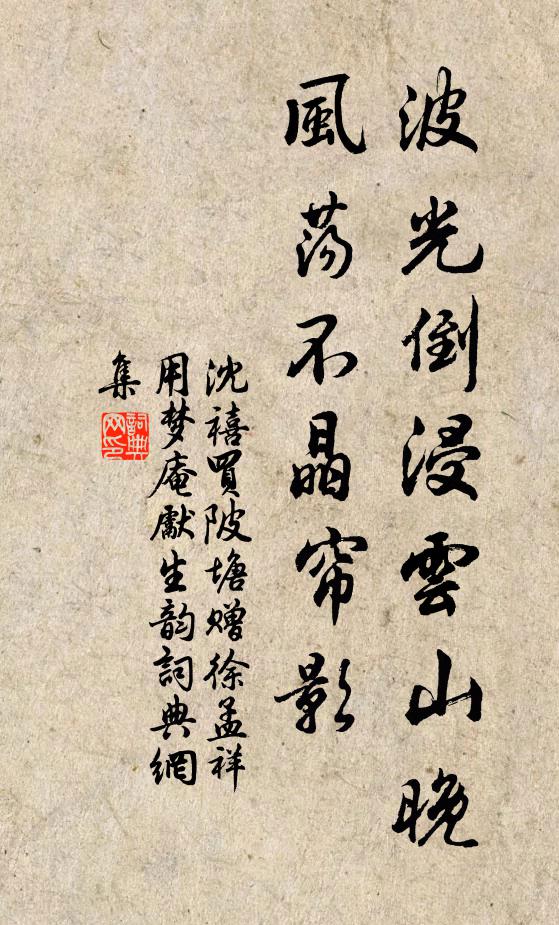 波光倒浸雲山晚
風蕩不晶帘影
沈禧買陂塘贈徐孟祥
用梦庵獻生韵詞典網
集
詞典
网印